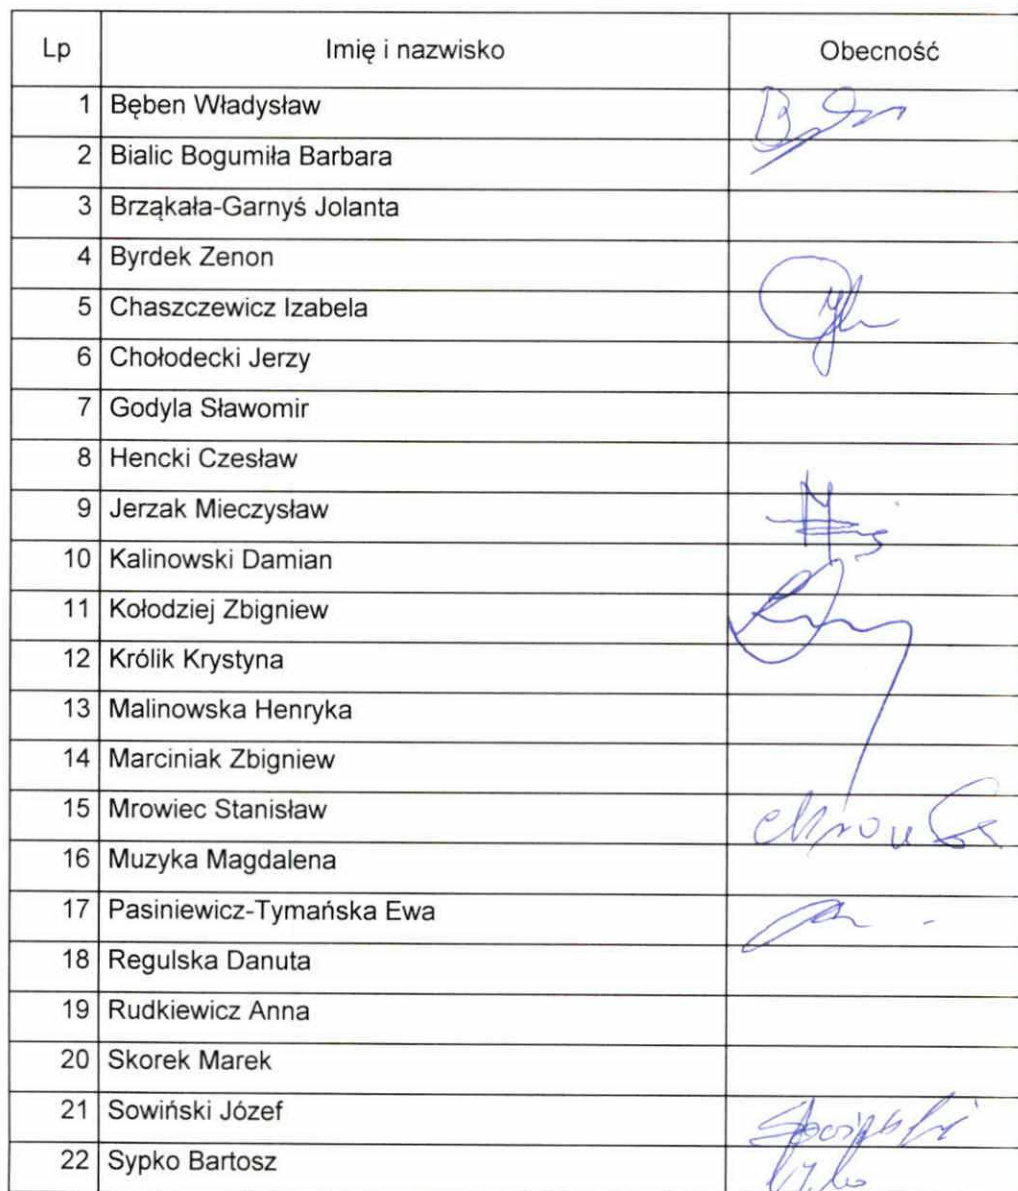 Lp Imię i nazwisko Obecność
1 Bęben Władysław
2 Bialic Bogumiła Barbara
3 Brząkała-Garnyś Jolanta
4 Byrdek Zenon
5 Chaszczewicz Izabela
6 Chołodecki Jerzy
7 Godyla Sławomir
8 Hencki Czesław
9 Jerzak Mieczysław
10 Kalinowski Damian
11 Kołodziej Zbigniew
12 Królik Krystyna
13 Malinowska Henryka
14 Marciniak Zbigniew
15 Mrowiec Stanisław
16 Muzyka Magdalena
17 Pasiniewicz-Tymańska Ewa
18 Regulska Danuta
19 Rudkiewicz Anna
20 Skorek Marek
21 Sowiński Józef
22 Sypko Bartosz